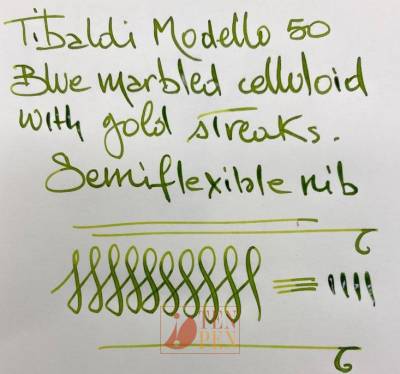 Tibaldi Modello 50
Blue marbled celluloid
with gold streaks.
Semiflexible nib
TEN
PEN